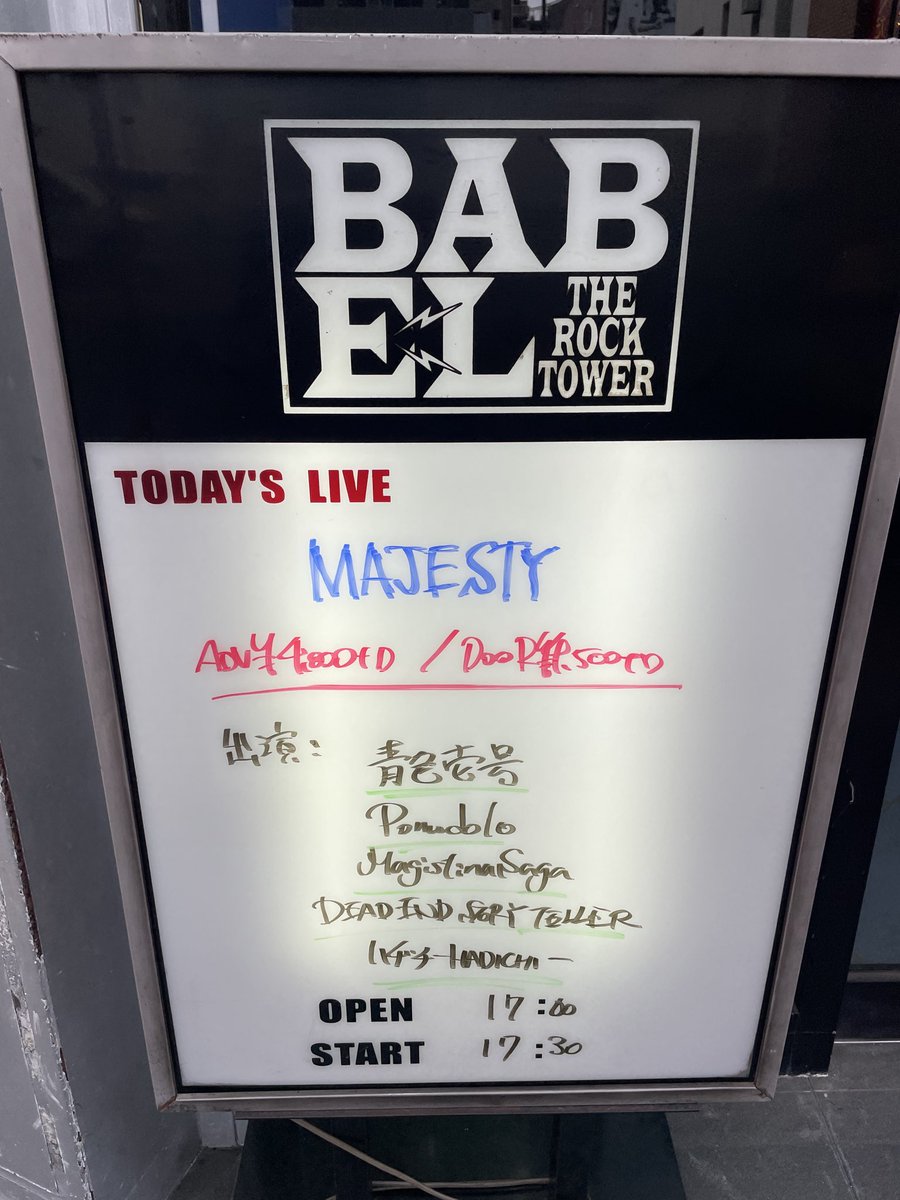 BAB
EL
THE
ROCK
TOWER
TODAY'S LIVE
MAJESTY
ADV ¥4,800+D / DOOR ¥5,500+D
出演:
青色壱号
Pomudolo
MagistinaSaga
DEAD END STORY TELLER
ハヂチ-HADICHI-
OPEN 17:00
START 17:30